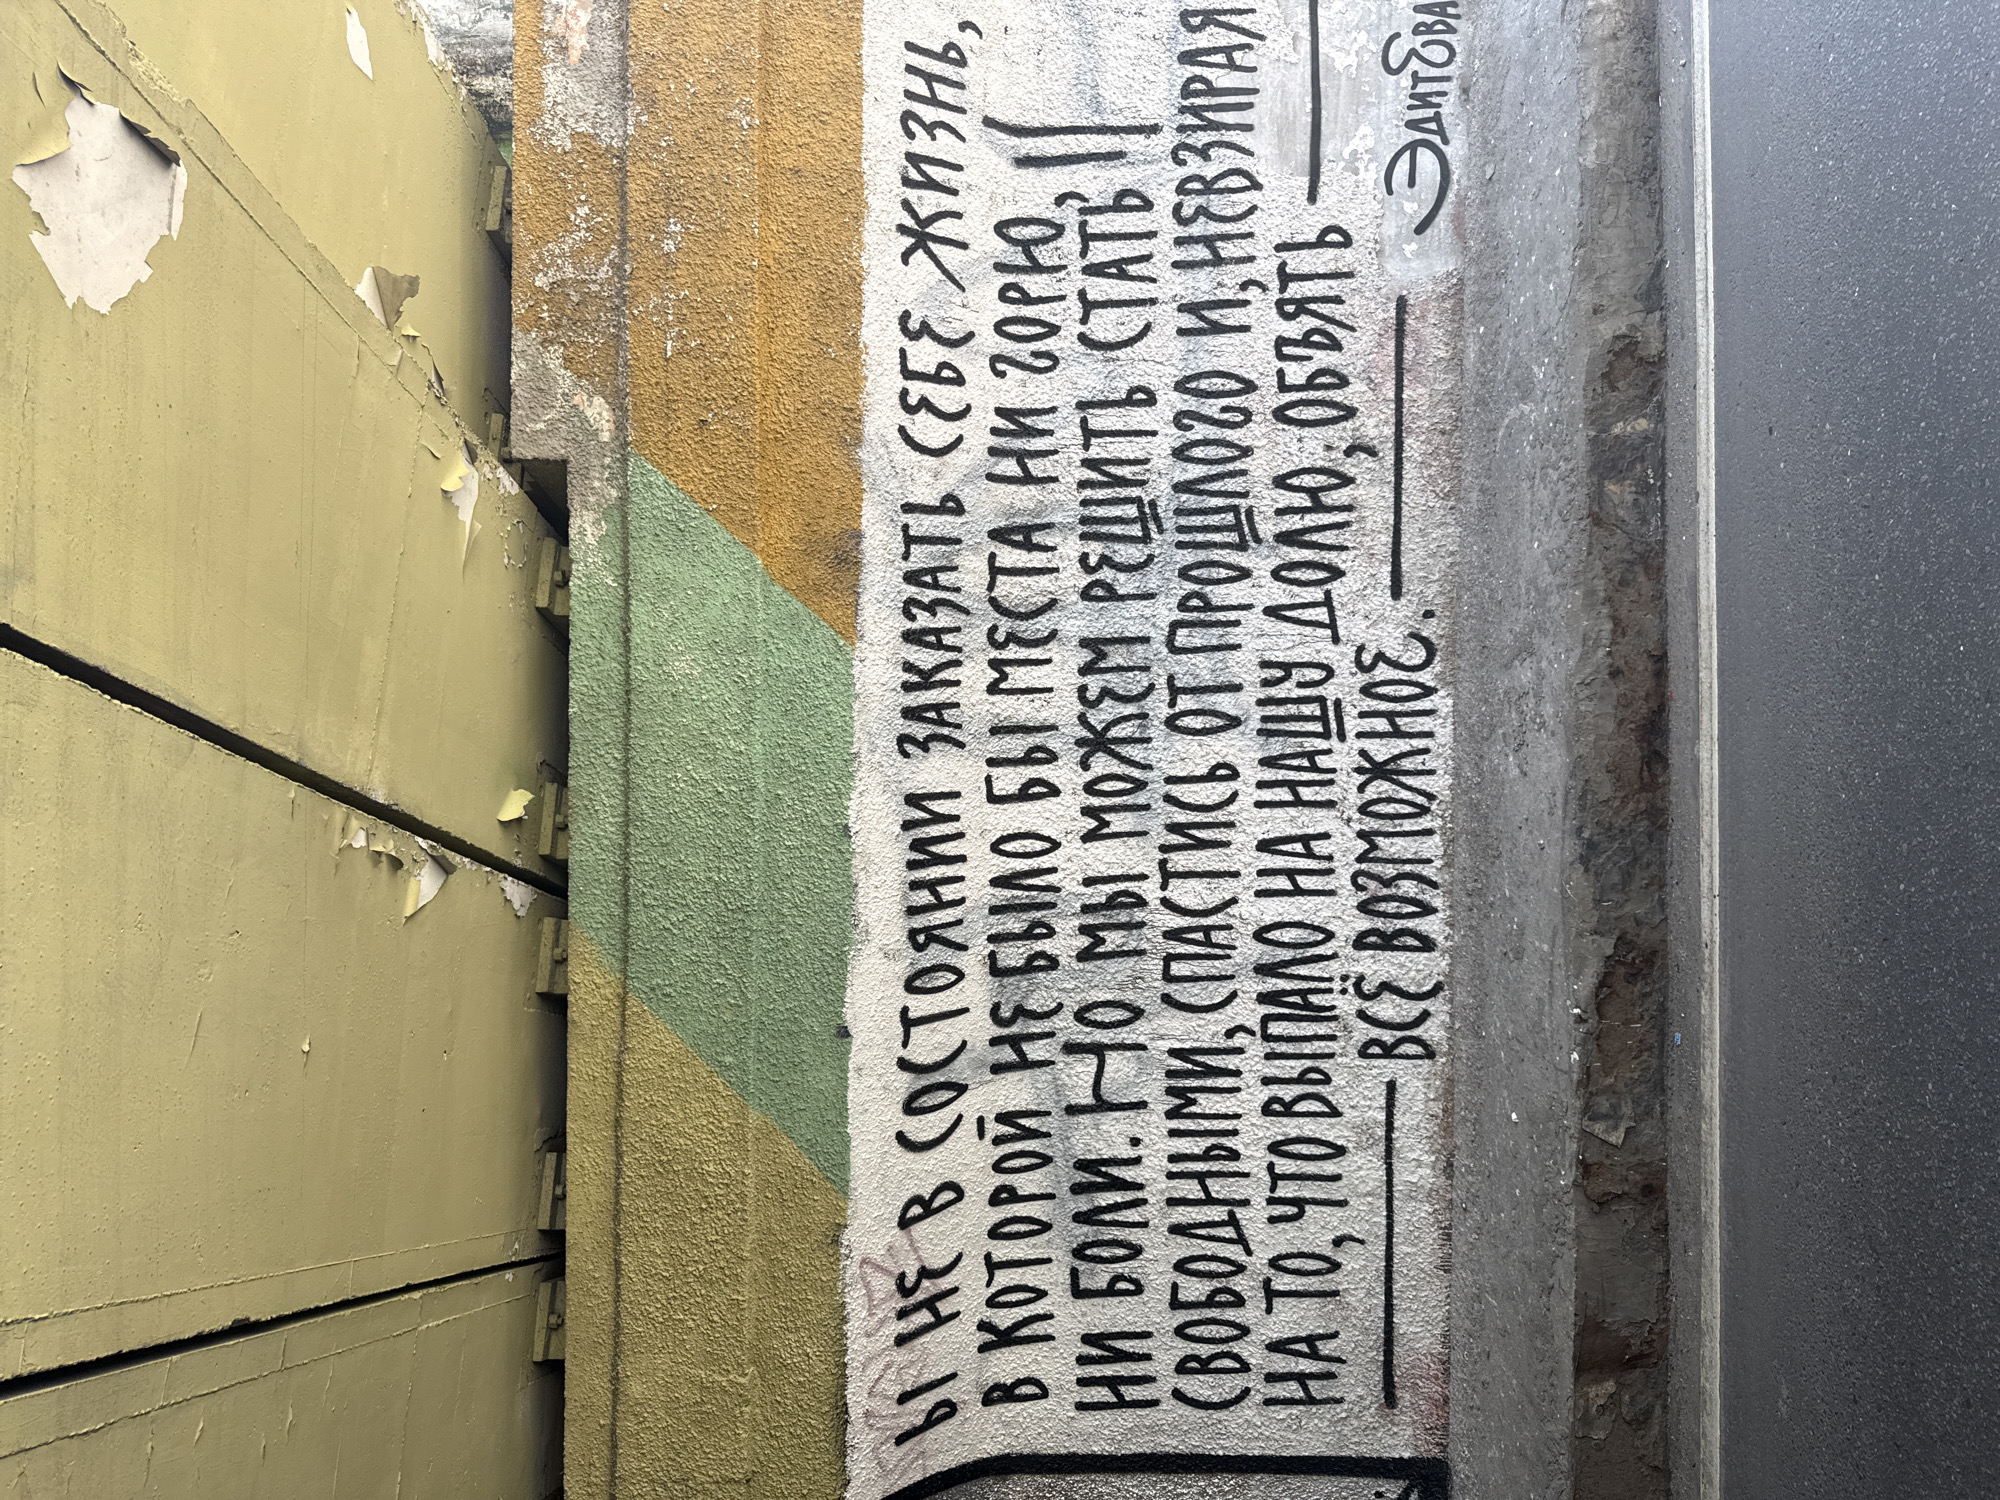 Ы НЕ В СОСТОЯНИИ ЗАКАЗАТЬ СЕБЕ ЖИЗНЬ,
В КОТОРОЙ НЕ БЫЛО БЫ МЕСТА НИ ГОРЮ,
НИ БОЛИ. НО МЫ МОЖЕМ РЕШИТЬ СТАТЬ
СВОБОДНЫМИ, СПАСТИСЬ ОТ ПРОШЛОГО И, НЕВЗИРАЯ
НА ТО, ЧТО ВЫПАЛО НА НАШУ ДОЛЮ, ОБЪЯТЬ
ВСЁ ВОЗМОЖНОЕ.
ЭДИТ ЕВА